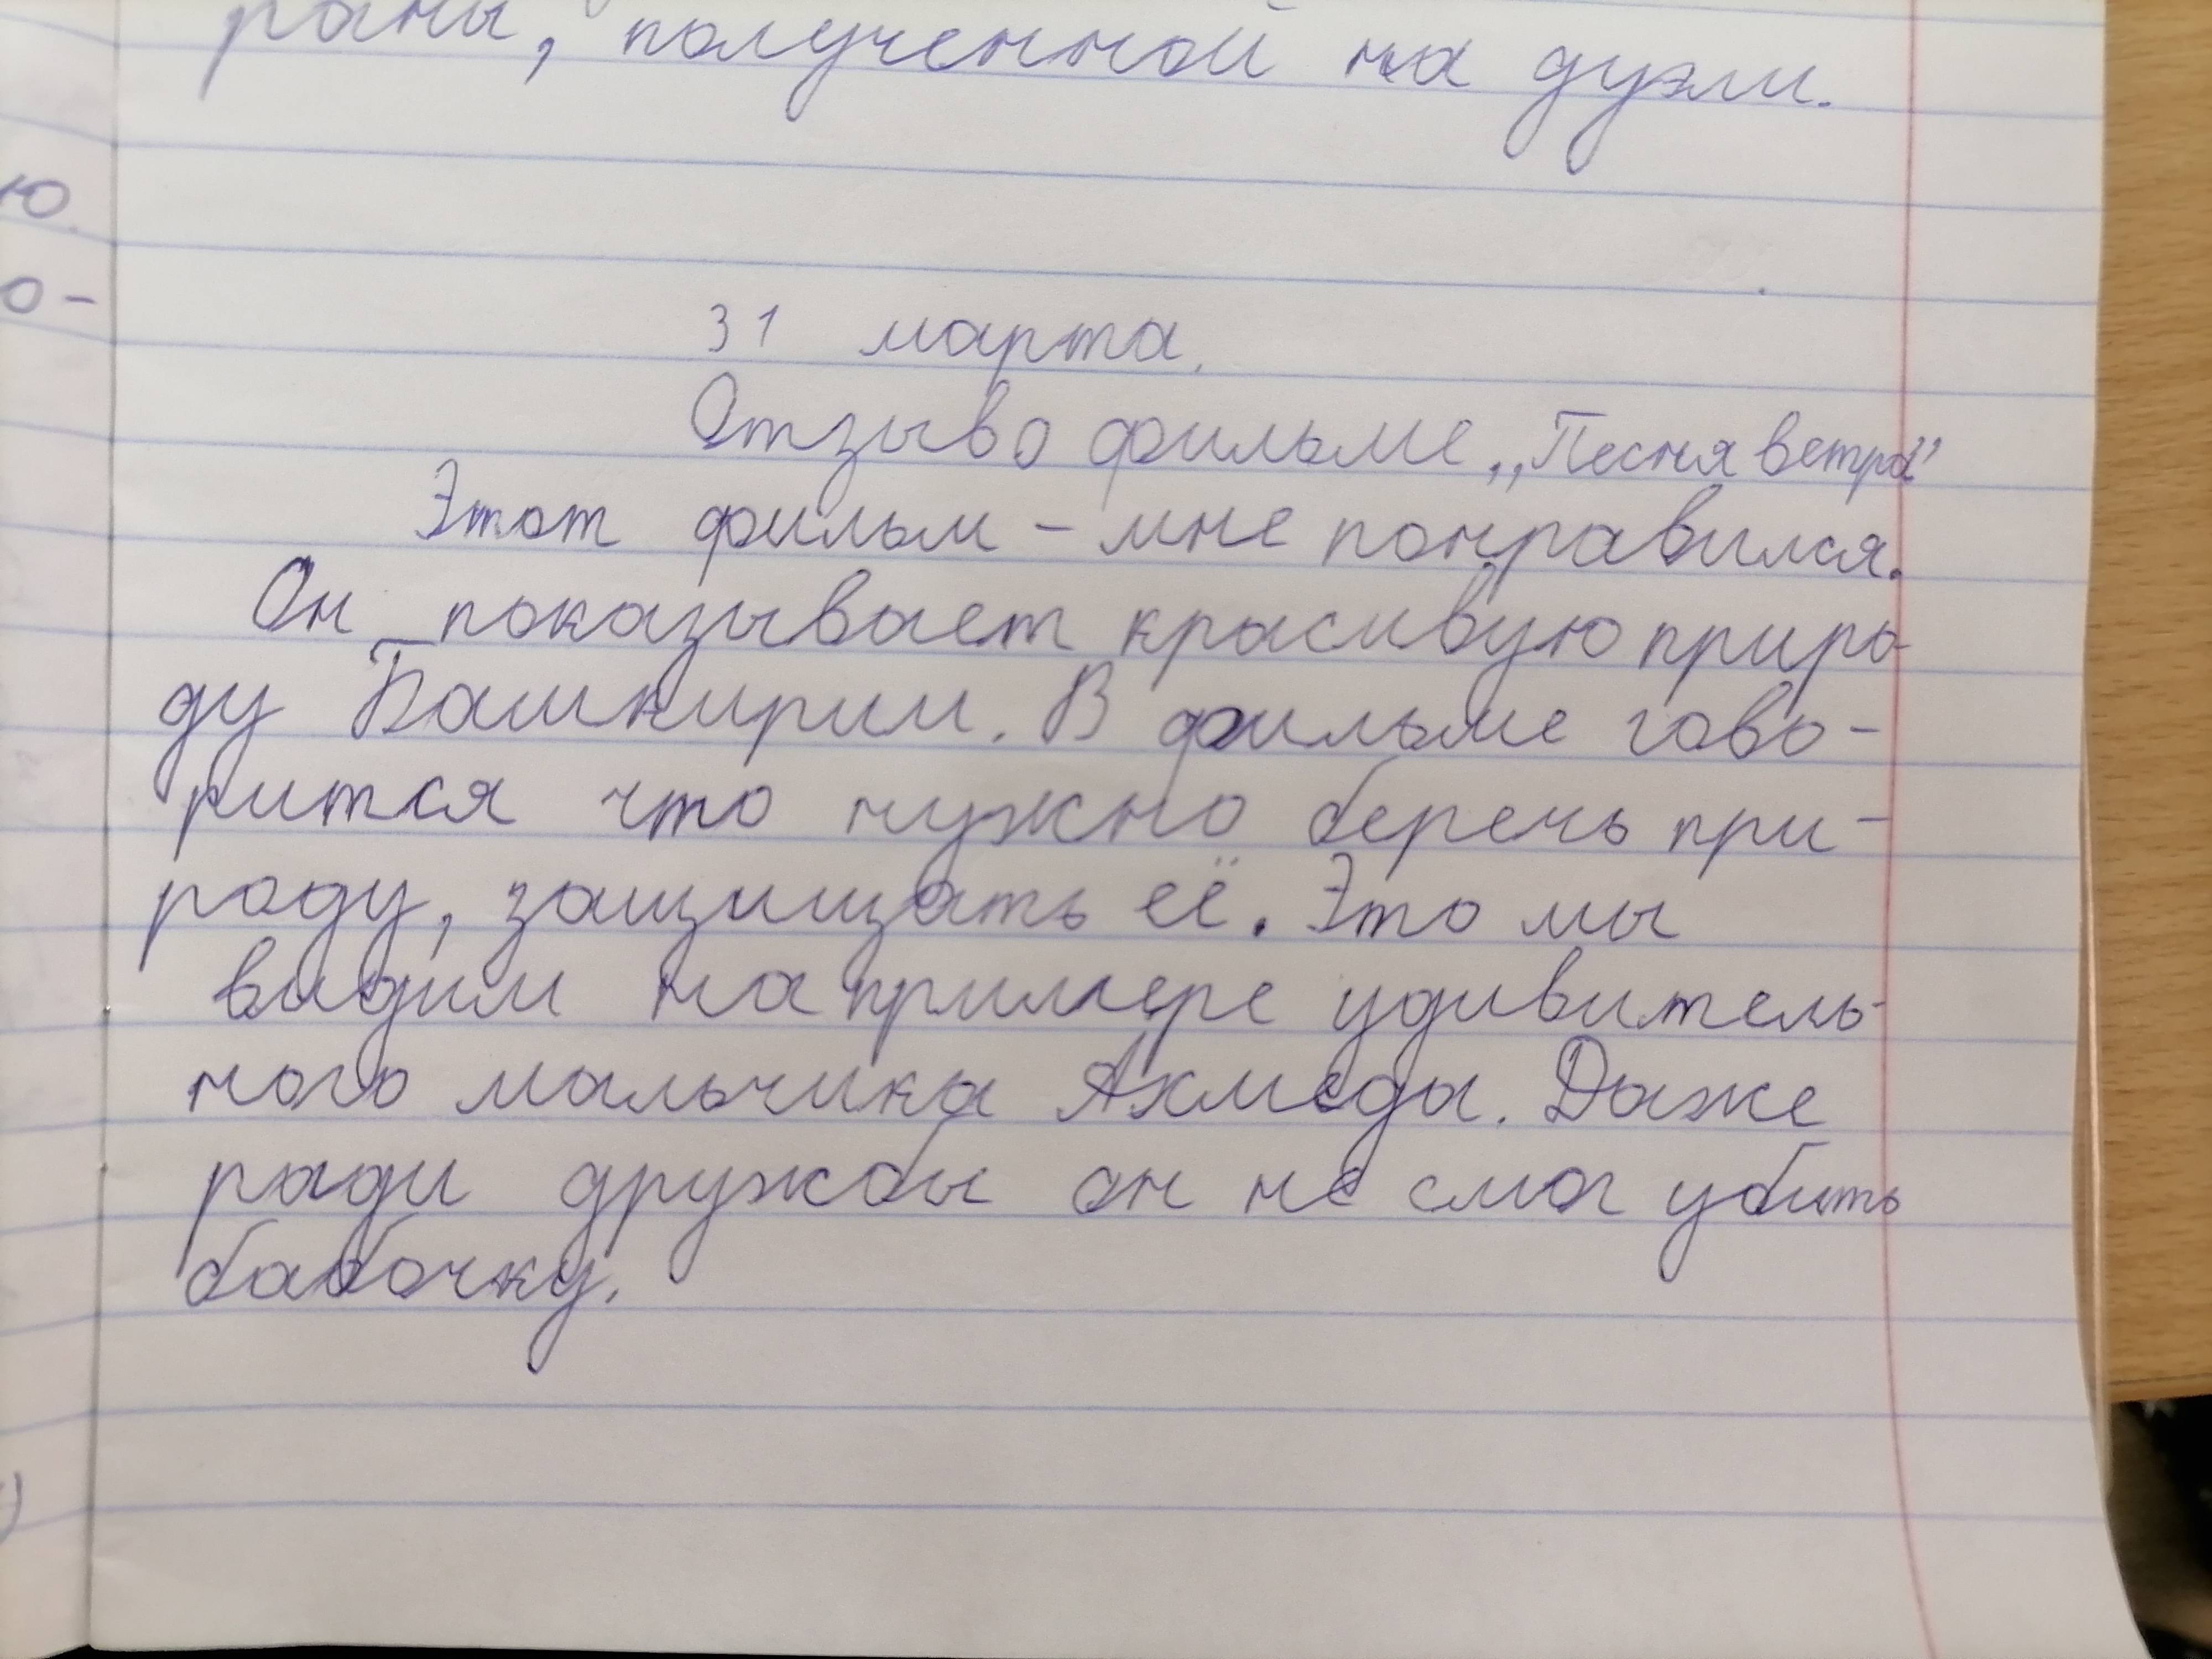 раны, полученной на дуэли.
ю.
о-
31 марта.
Отзыв о фильме „Песня ветра"
Этот фильм - мне понравился.
Он показывает красивую приро-
ду Башкирии. В фильме гово-
рится что нужно беречь при-
роду, защищать её. Это мы
видим на примере удивитель-
ного мальчика Ахмеда. Даже
ради дружбы он не смог убить
бабочку.